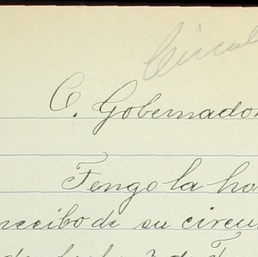 Circul
C. Gobernador
Tengo la ho
recibo de su circu
de fecha 2 de F